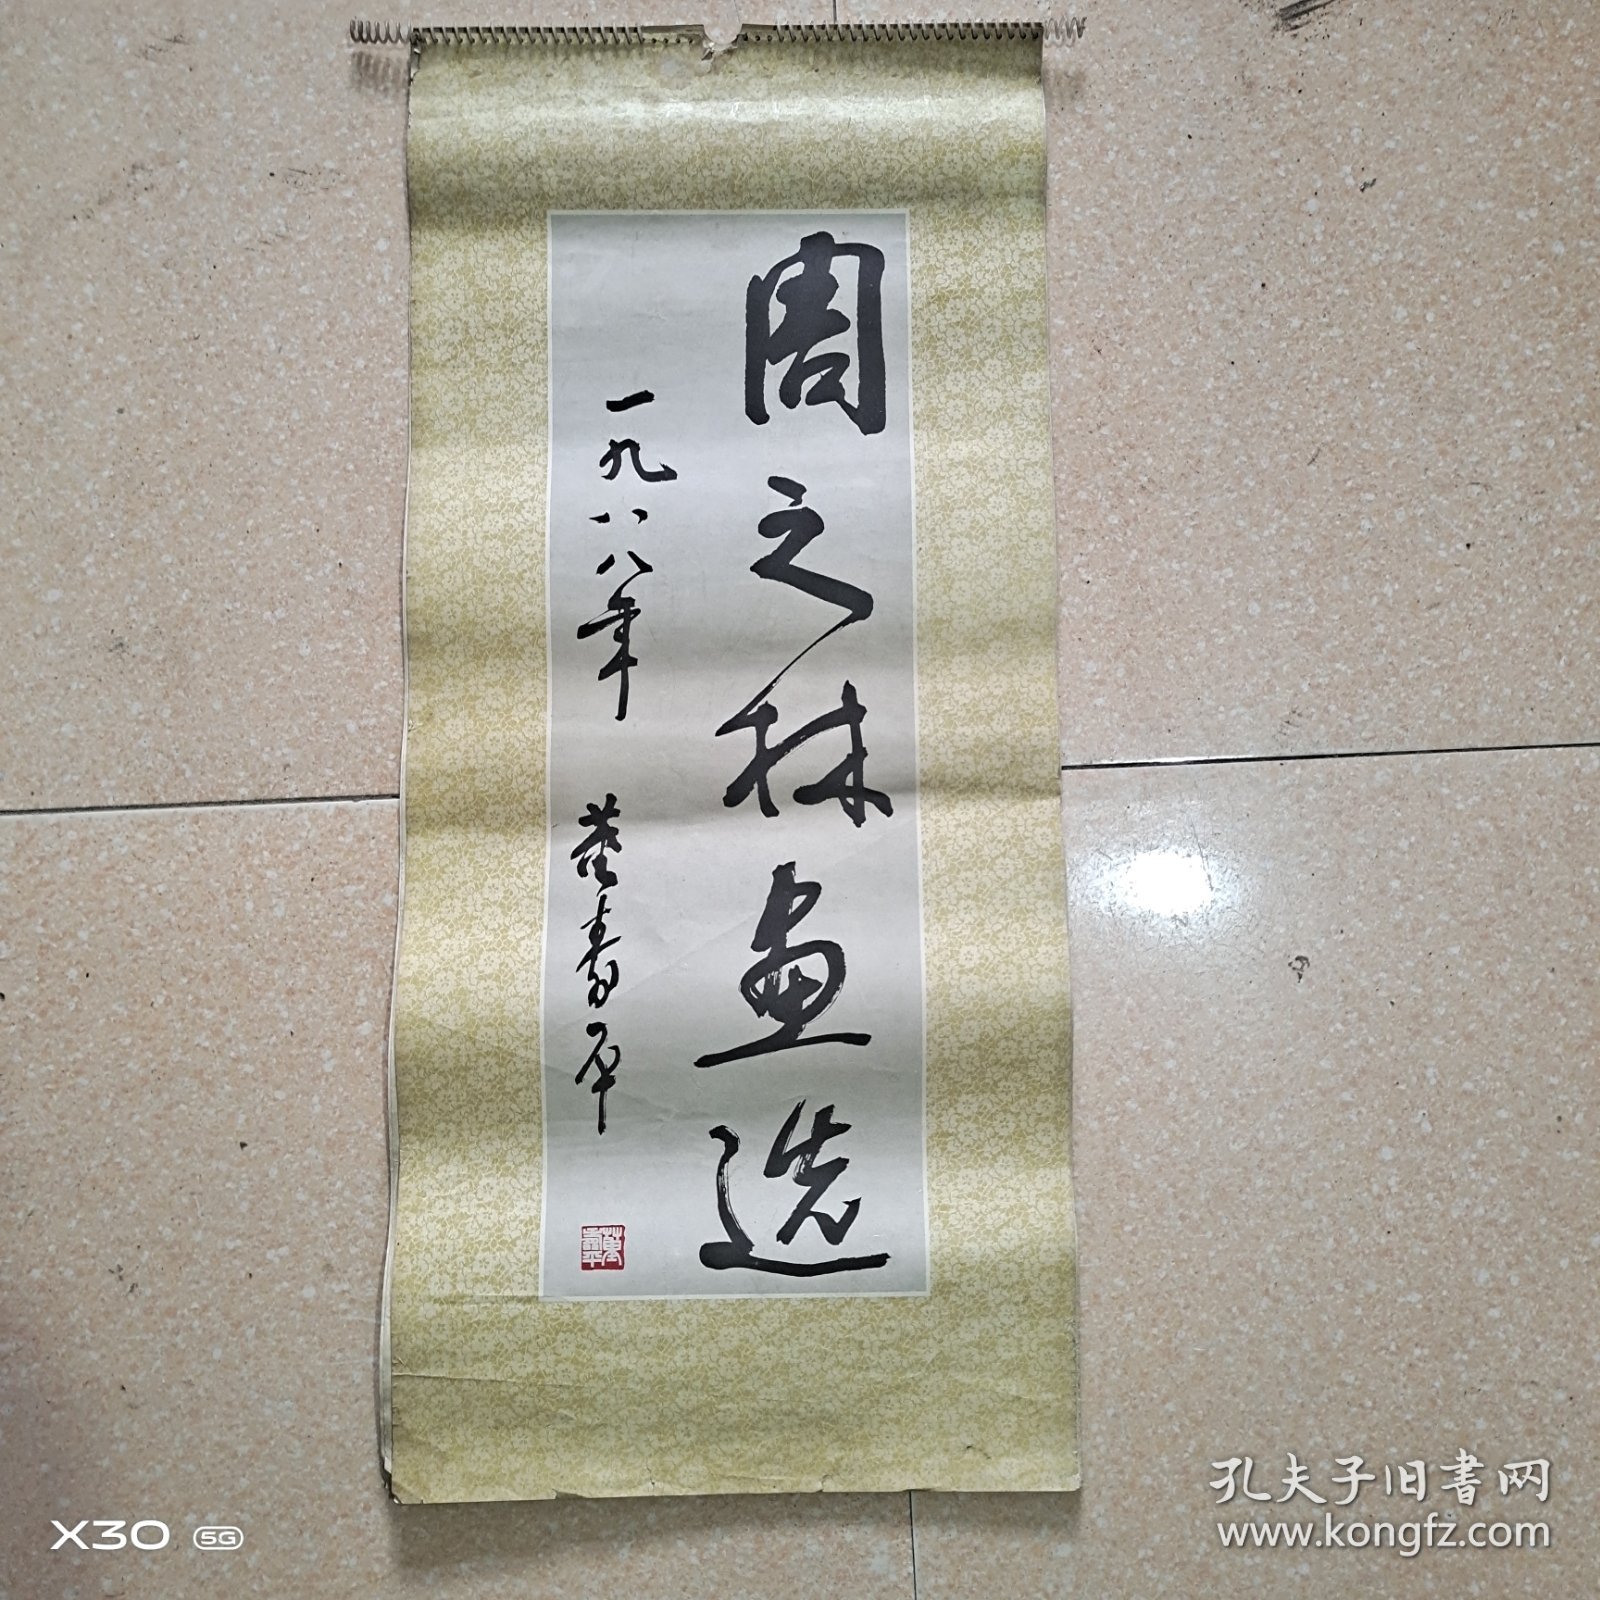 周之林画选
一九八八年 董寿平
董寿平
孔夫子旧书网
www.kongfz.com
X30 5G